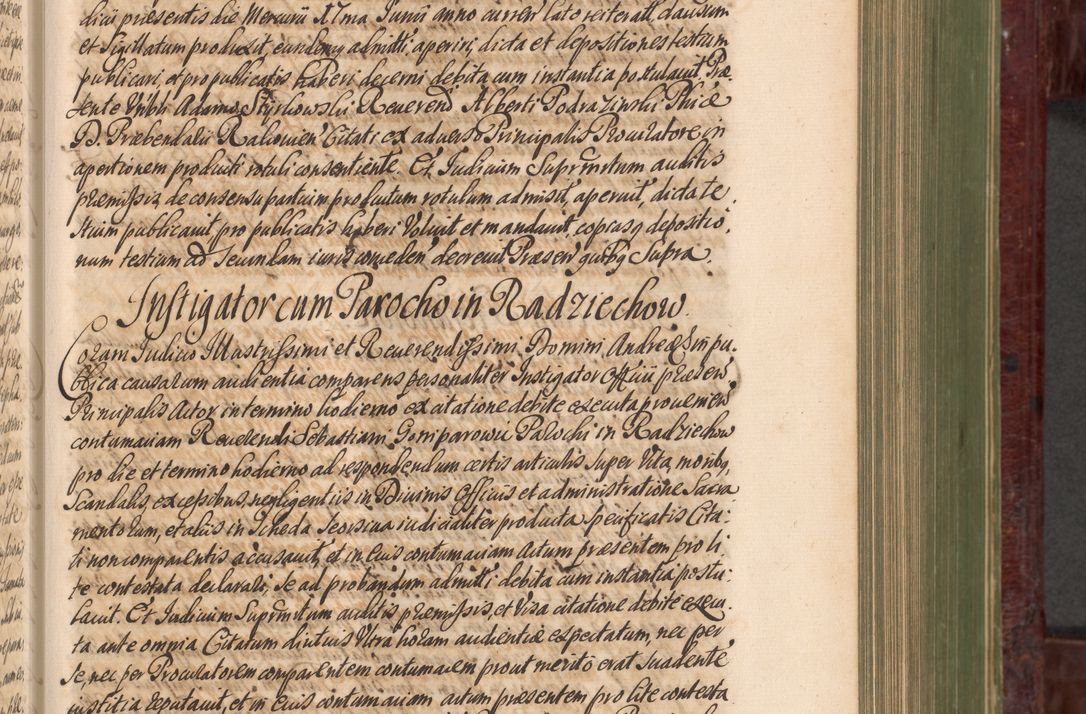 dicij præsentis die Mercurij 17ma Junij anno curren lato reiteratt, clausum
et Sigillatum produxit, eundemq admitti, aperiri, dicta et depositiones testium
publicari, et pro publicatis haberi decerni debita cum instantia postulavit Præ
sente Nobli Adamo Stykowski Reverend Alberti Podrazinski Phiæ
D. Præbendarij Rakovien Citati ex adverso Principalis Procuratore in
apertionem producti rotuli consentiente. Et Judicium Suprmtum auditis
præmissis, de consensu partium productum rotulum admisit, aperuit, dicta te,
stium publicavit, pro publicatis haberi Voluit et mandavit, copiasq depositio,
num testium ad Secundam juris conceden decrevit Præsen quibq Supra.
Instigator cum Parocho in Radziechow.
Coram Judicio Illustrissimi et Reverendissimi Domini Andreæ in pu,
blica causarum audientia comparens personaliter Instigator Officij præsen
Principalis Actor in termino hodierno ex citatione debite executa provenien
contumaciam Reverendi Sebastiani Gomparowic Parochi in Radziechow
pro die et termino hodierno ad respondendum certis articulis super Vita, moribq,
Scandalis, excessibus, negligentijs in Divinis Officijs et administratione Sacra
mentorum, et alijs in Scheda seorsiva judicialiter producta specificatis Cita:
ti non comparentis accusavit, et in eius contumaciam Actum præsentem pro li
te contestata declarari, se ad probandum admitti debita cum instantia postu:
lavit. Et Judicium Suprmtum auditis præmissis, et Visa citatione debite execu.
ta ante omnia Citatum diutius Ultra horam audientiæ expectatum, nec per
se, nec per Procuratorem comparentem contumacem prout merito erat suadente
justitia reputavit, et in eius contumaciam actum præsentem pro lite contesta